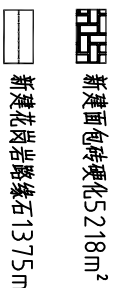 新建面包砖硬化5218m²
新建花岗岩路缘石1375m